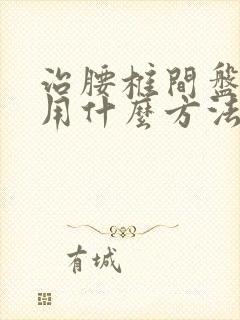 治腰椎間盤
用什麼方法
有城